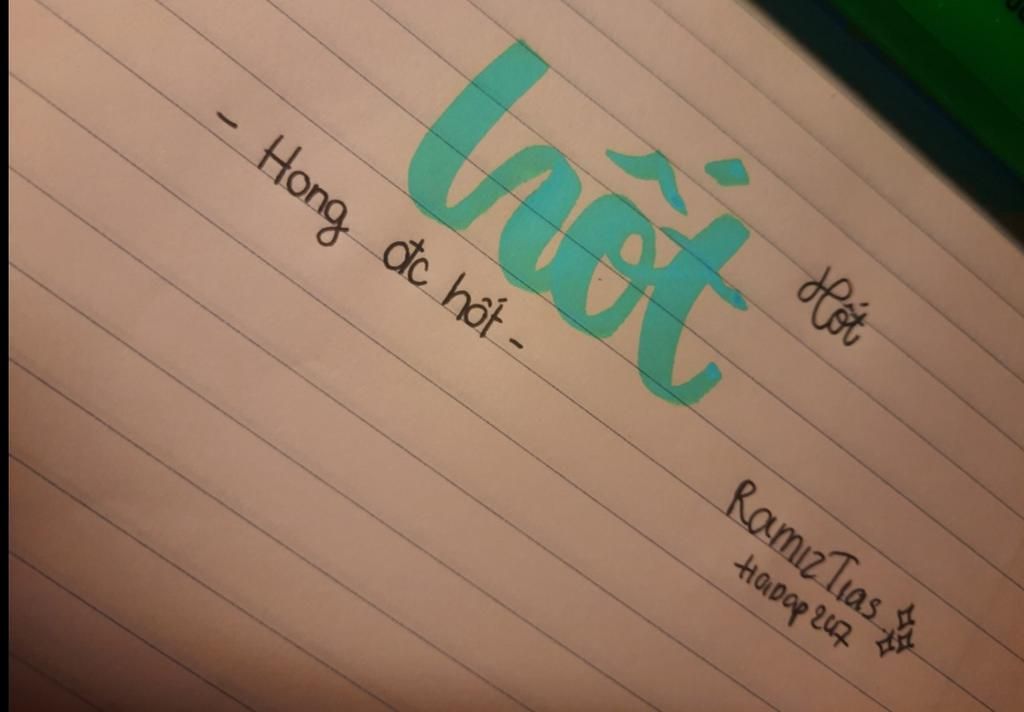 hốt
- Hong đc hốt -
Hốt
RamizTias
HoiDap247